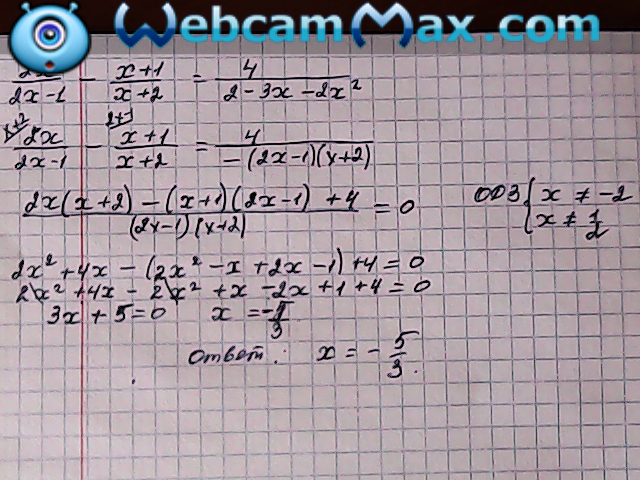 WebcamMax.com
2x/(2x-1) - (x+1)/(x+2) = 4/(2-3x-2x²)
2x/(2x-1) - (x+1)/(x+2) = 4/(-(2x-1)(x+2))
(2x(x+2) - (x+1)(2x-1) + 4)/((2x-1)(x+2)) = 0 ОДЗ { x ≠ -2
x ≠ 1/2
2x² + 4x - (2x² - x + 2x - 1) + 4 = 0
2x² + 4x - 2x² + x - 2x + 1 + 4 = 0
3x + 5 = 0 x = -5/3
Ответ: x = - 5/3.